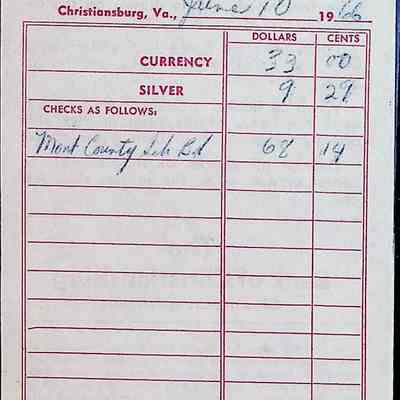 Christiansburg, Va., June 10 1966
DOLLARS CENTS
CURRENCY 33 00
SILVER 9 29
CHECKS AS FOLLOWS:
Mont County Sch Bd 68 14